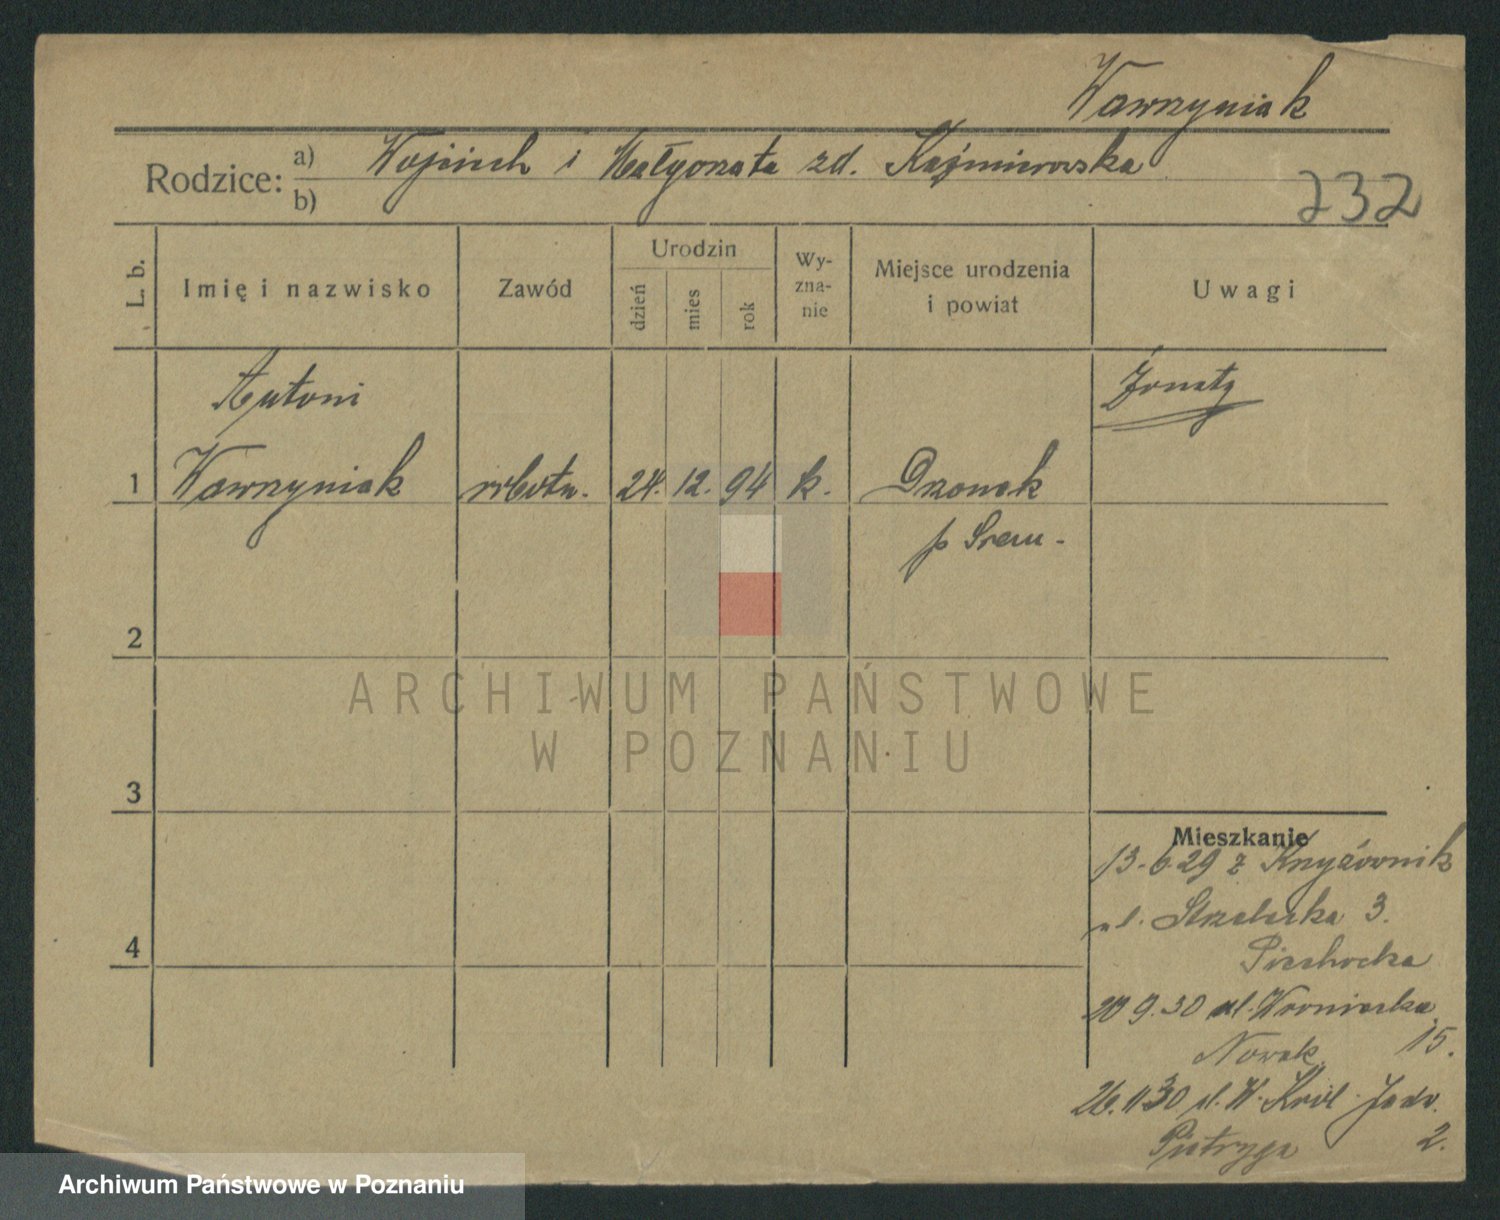 Wawrzyniak
Rodzice: a) Wojciech i Małgorzata zd. Kaźmierowska
b)
232
L. b.
Imię i nazwisko
Zawód
Urodzin
dzień
mies
rok
Wy-
zna-
nie
Miejsce urodzenia
i powiat
Uwagi
Antoni
Żonaty
1 Wawrzyniak robotn. 24. 12. 94 k. Drzonek
p Śrem -
2
ARCHIWUM PAŃSTWOWE
W POZNANIU
3
Mieszkanie
13.6.29 z Krzyżownik
ul. Strzelecka 3.
Piechocka
4
20 9.30 ul. Wroniecka
Nowak 15.
26.11 30 ul. W. Król. Jadw.
Pietryga 2.
Archiwum Państwowe w Poznaniu